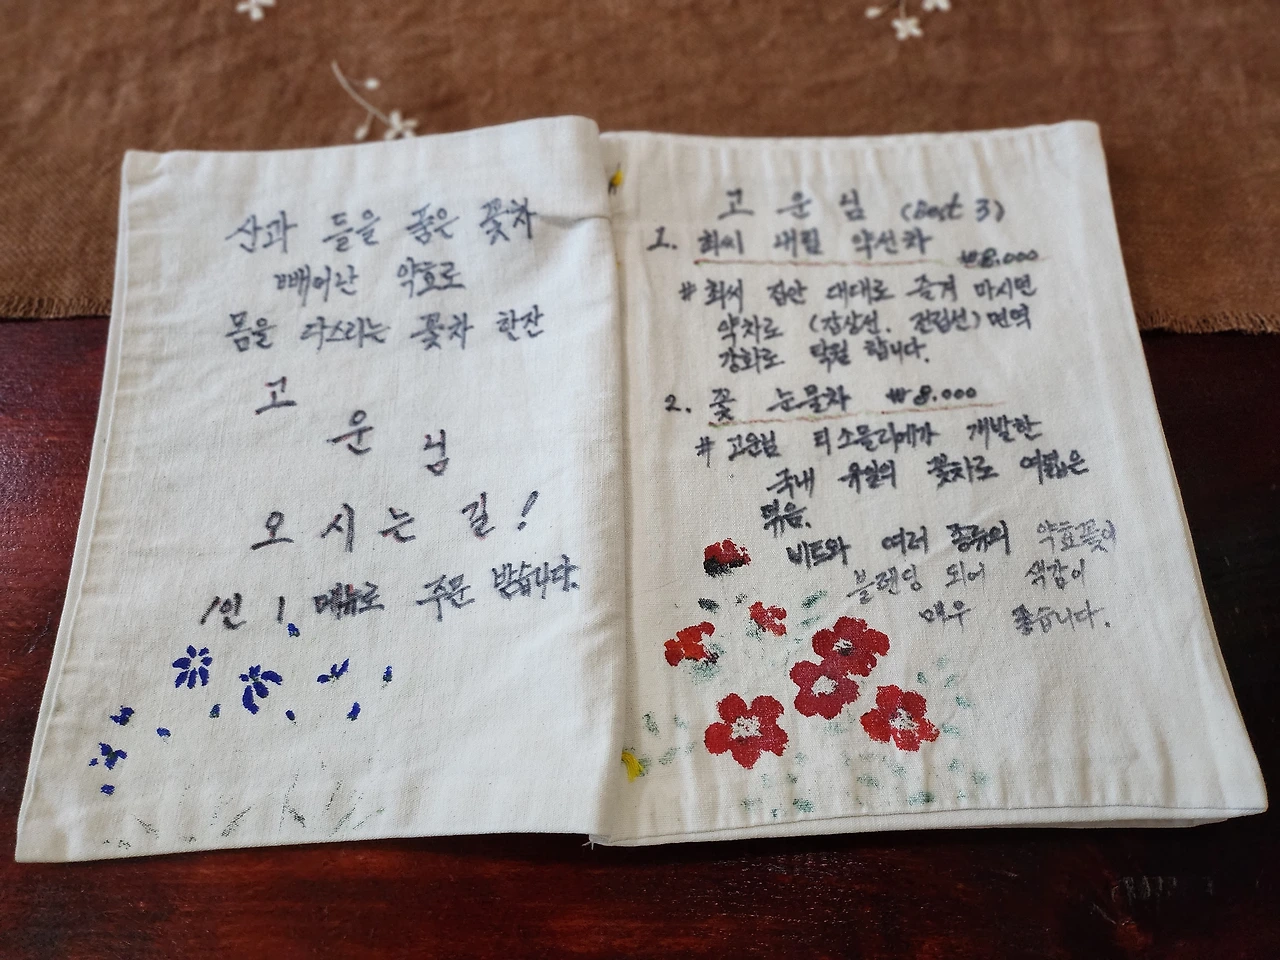 산과 들을 품은 꽃차
빼어난 약효로
몸을 다스리는 꽃차 한잔
고
운
님
오 시 는 길!
1인 1 메뉴로 주문 받습니다.
고 운 님 (Best 3)
1. 최씨 내림 약선차 ₩8.000
# 최씨 집안 대대로 즐겨 마시면
약차로 (갑상선. 전립선) 면역
강화로 탁월 합니다.
2. 꽃 눈물차 ₩8.000
# 고운님 티소믈리에가 개발한
국내 유일의 꽃차로 여럷은
묶음.
비트와 여러 종류의 약효꽃이
블랜딩 되어 색감이
매우 좋습니다.